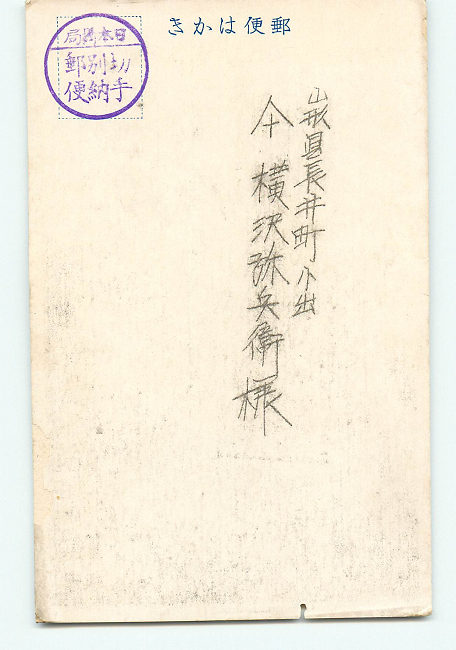 郵便はかき
日本橋局
切手
別納
郵便
山形県長井町小出
横沢弥兵衛様